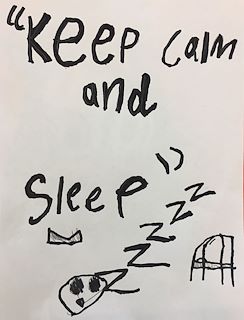 "Keep calm
and
Sleep"
zzzzzz